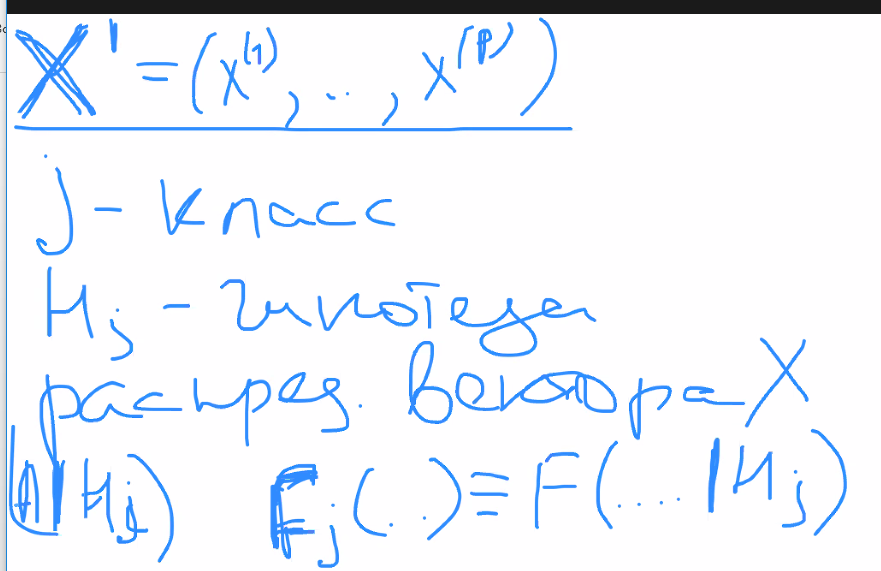 X' = (x^(1), ..., x^(p))
j - класс
H_j - гипотеза
распред. вектора X
|H_j) F_j(..) ≡ F(....|H_j)